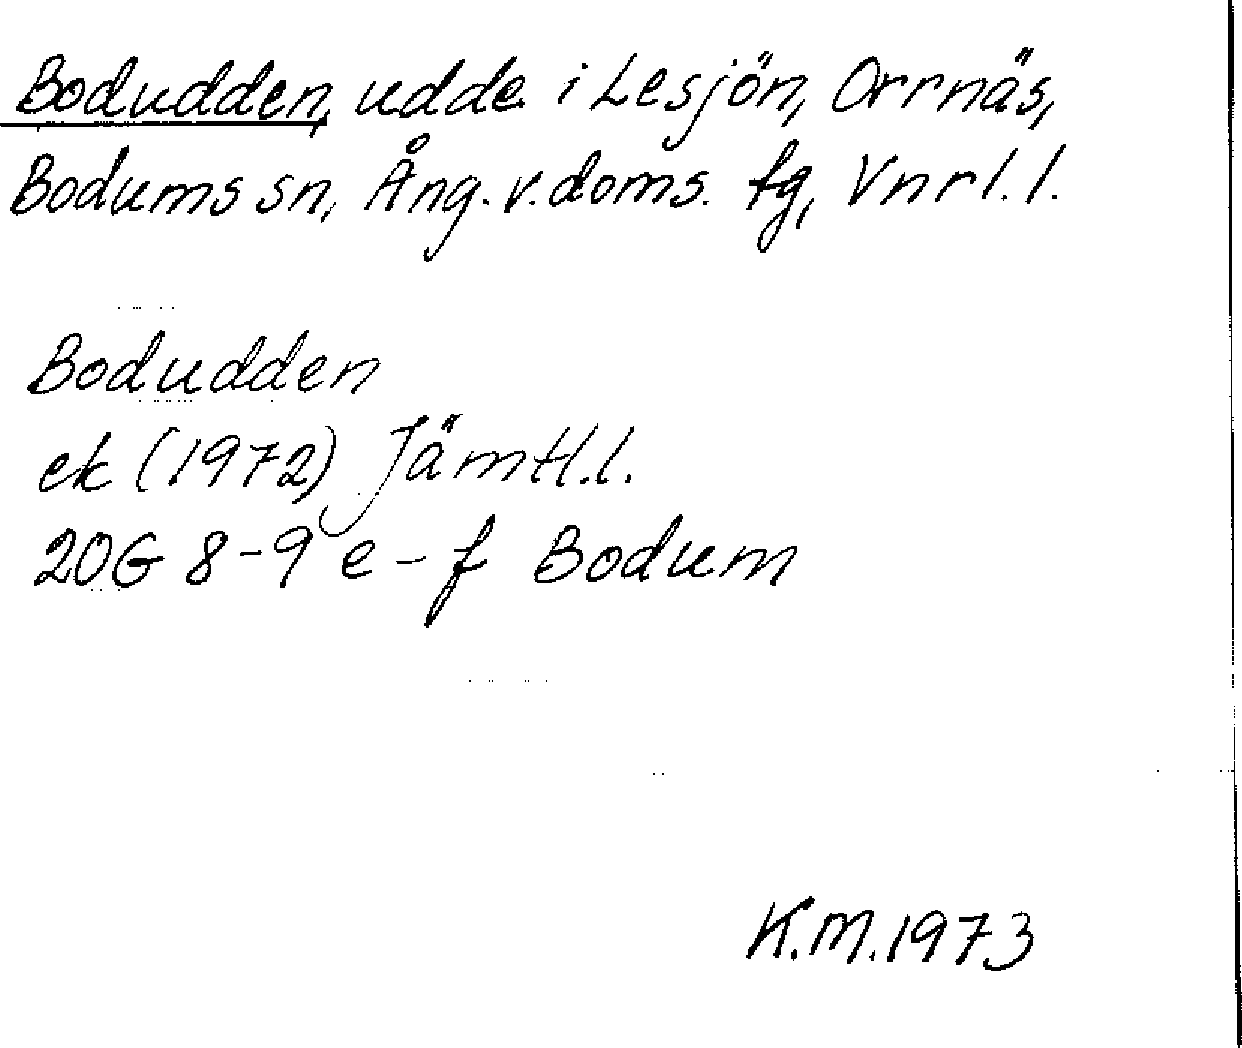 Bodudden, udde i Lesjön, Orrnäs,
Bodums sn, Ång. v. doms. fg, Vnrl. l.
Bodudden
ek (1972) Jämtl.l.
20G 8-9 e-f Bodum
K.M.1973